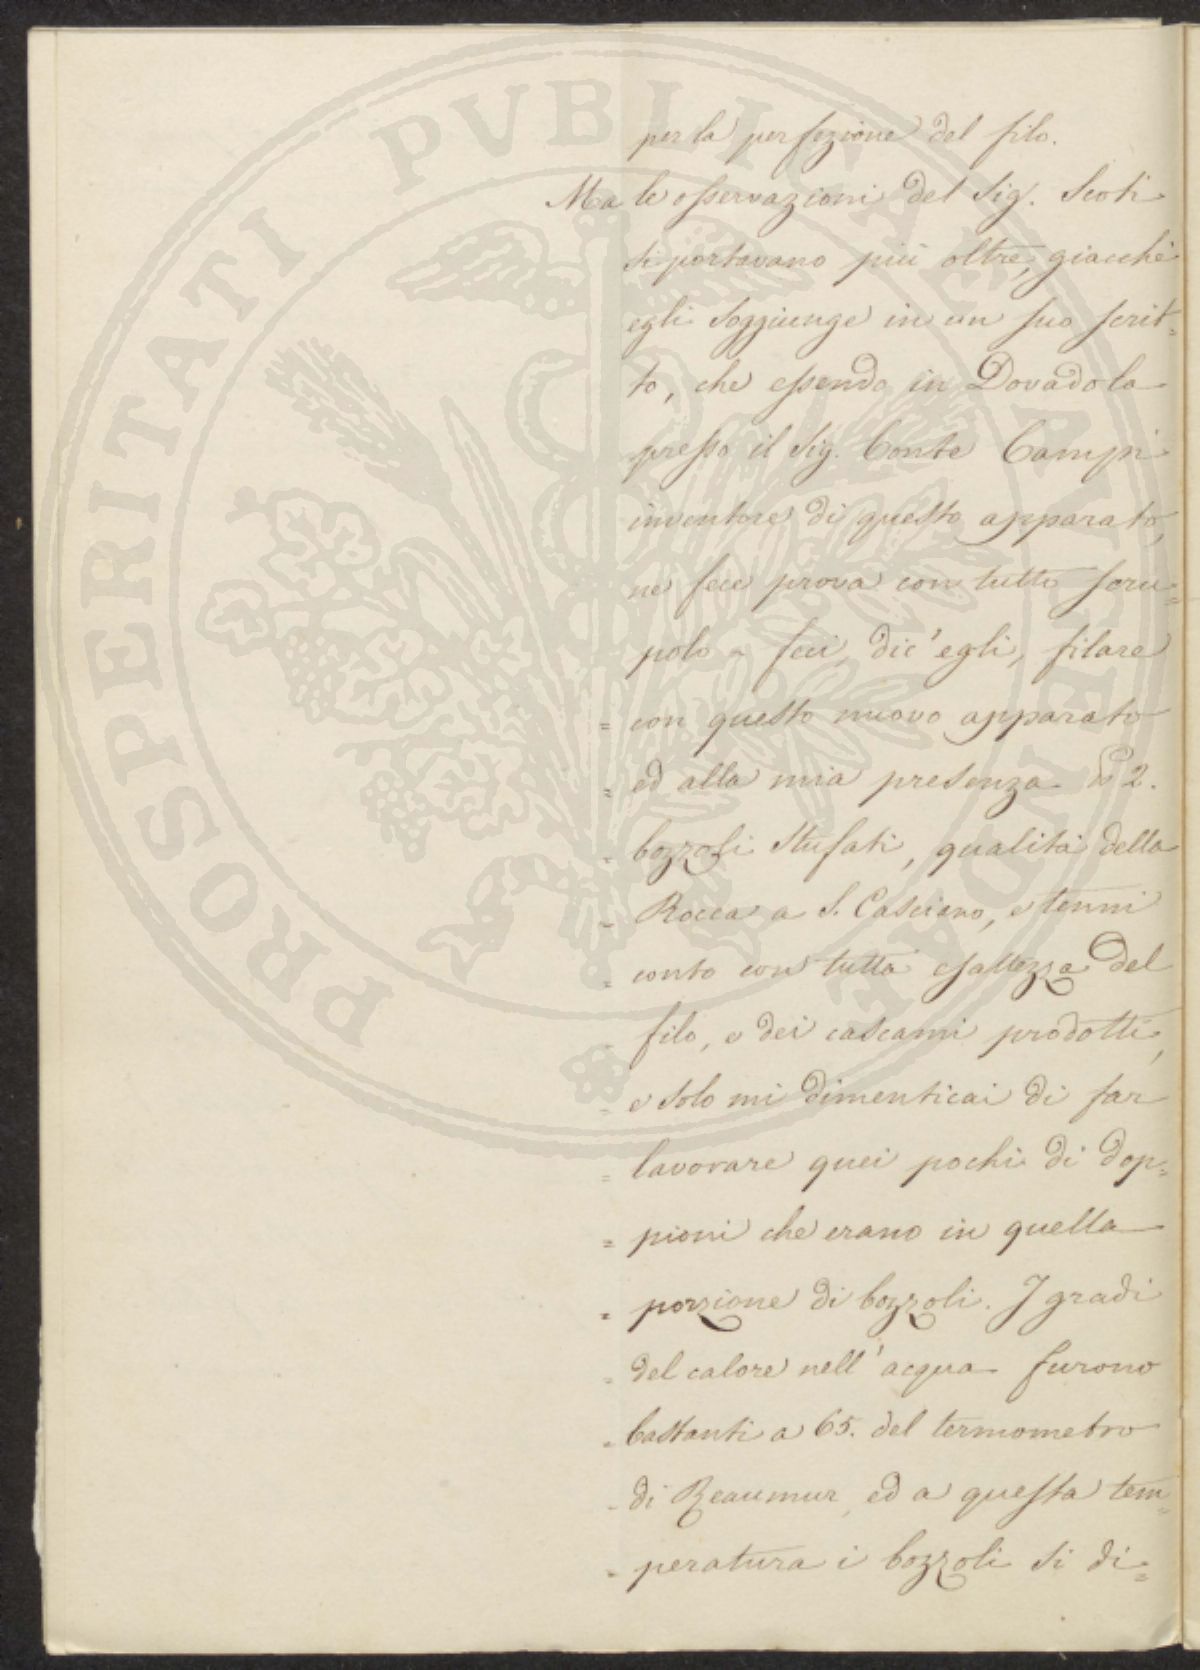 per la perfezione del filo.
Ma le osservazioni del Sig. Scoti
si portavano più oltre, giacchè
egli soggiunge in un suo scrit=
to, che essendo in Dovadola
presso il Sig. Conte Campi
inventore di questo apparato,
ne fece prova con tutto scru=
polo = feci, dic'egli, filare
= con questo nuovo apparato
= ed alla mia presenza ℔ 2.
= bozzoli stufati, qualità della
= Rocca a S. Casciano, e tenni
= conto con tutta esattezza del
= filo, e dei cascami prodotti,
= e solo mi dimenticai di far
= lavorare quei pochi di dop=
= pioni che erano in quella
= porzione di bozzoli. I gradi
= del calore nell'acqua furono
= bastanti a 65. del termometro
= di Reaumur, ed a questa tem=
= peratura i bozzoli si di=
PROSPERITATI PVBLICAE AVGENDAE